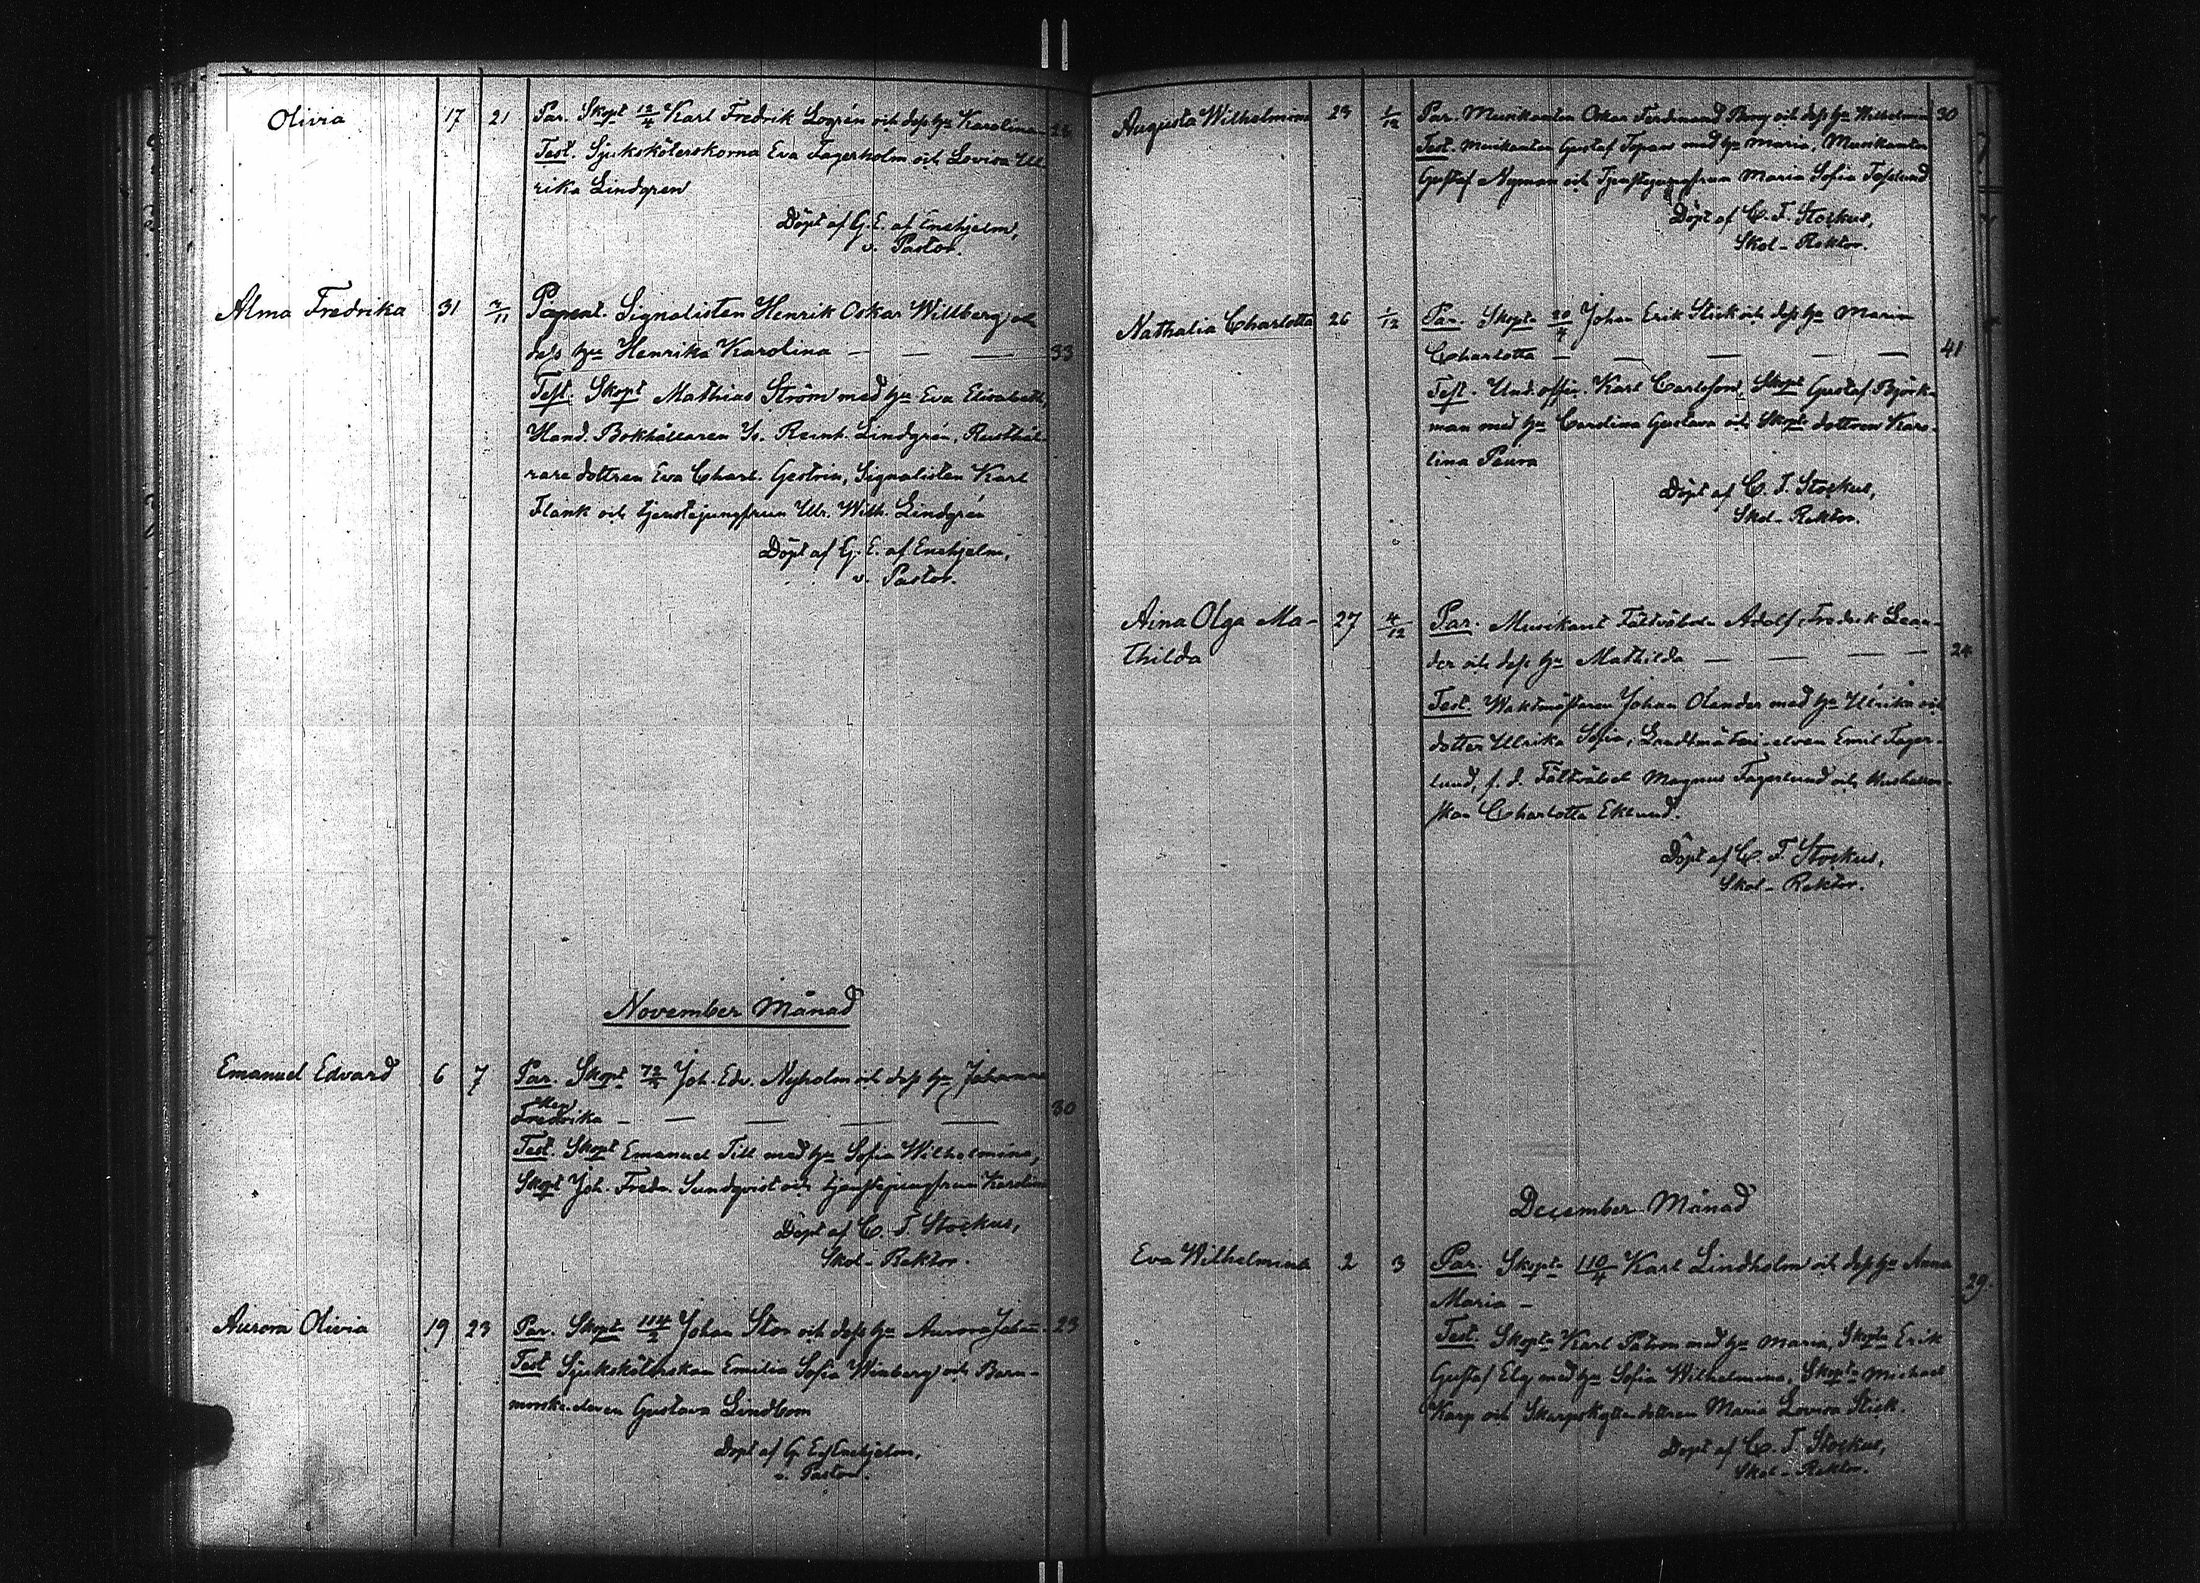 Olivia 17 21 Par. Skopt 12/4 Karl Fredrik Logrén och dess hu Karolina 26
Test. Sjuksköterskorna Eva Fagerholm och Lovisa Ul
rika Lindgren
Döpt af G. E. af Enehjelm,
v. Pastor.
Alma Fredrika 31 7/11 Parent. Signalisten Henrik Oskar Willberg och
dess hu Henrika Karolina — — — 33
Test. Skopt Mathias Ström med hu Eva Elisabeth,
Hand. Bokhållaren Reinh. Lindgrén, Rusthål-
rare dottren Eva Charl. Gestrin, Signalisten Karl
Flank och tjenstejungfrun Ulr. Wilh. Lindgrén
Döpt af G. E. af Enehjelm,
v. Pastor.
November Månad
Emanuel Edvard 6 7 Par. Skopt 72/4 Joh. Edv. Nyholm och dess hu Johanna
Fredrika — — — — — 30
Test. Skopt Emanuel Till med hu Sofia Wilhelmina,
Skopt Joh. Fredr. Sundqvist och tjenstejungfrun Karolina
Döpt af C. F. Stockus,
Skol-Rektor.
Aurora Olivia 19 23 Par. Skopt 114/2 Johan Stor och dess hu Aurora Joha- 23
Test Sjuksköterskan Emilia Sofia Winberg och Barn-
morske eleven Gustava Lindbom
Döpt af G. E. af Enehjelm,
v. Pastor.
Augusta Wilhelmina 23 1/12 Par. Musikanten Oskar Ferdinand Berg och dess hu Wilhelmina 30
Test. Musikanten Gustaf Topans med hu Maria, Musikanten
Gustaf Nyman och Tjenstejungfrun Maria Sofia
Döpt af C. F. Stockus,
Skol-Rektor.
Nathalia Charlotta 26 1/12 Par. Skopt. 20/4 Johan Erik Stick och dess hu Maria
Charlotta — — — — — 41
Test. Und. offic. Karl Carlsson, Skopt Gustaf Björk-
man med hu Carolina Gustava och Skopts dottren Karo-
lina Paura
Döpt af C. F. Stockus,
Skol-Rektor.
Aina Olga Ma- 27 4/12 Par. Musikant Fältväbeln Adolf Fredrik Lean-
thilda
der och dess hu Mathilda — — — — 24
Test. Waktmästaren Johan Olander med hu Ulrika och
dotter Ulrika Sofia, Landtmäteri-eleven Emil Fager-
lund, f. d. Fältväbel Magnus Fagerlund och Hushåller-
skan Charlotta Eklund.
Döpt af C. F. Stockus,
Skol-Rektor.
December Månad
Eva Wilhelmina 2 3 Par. Skopt 110/4 Karl Lindholm och dess hu Anna
Maria — 29.
Test. Skopt Karl Patron med hu Maria, Skopt Erik
Gustaf Elg med hu Sofia Wilhelmina, Skopt Michael
Karp och Skarpskyttedottren Maria Lovisa Stick.
Döpt af C. F. Stockus,
Skol-Rektor.